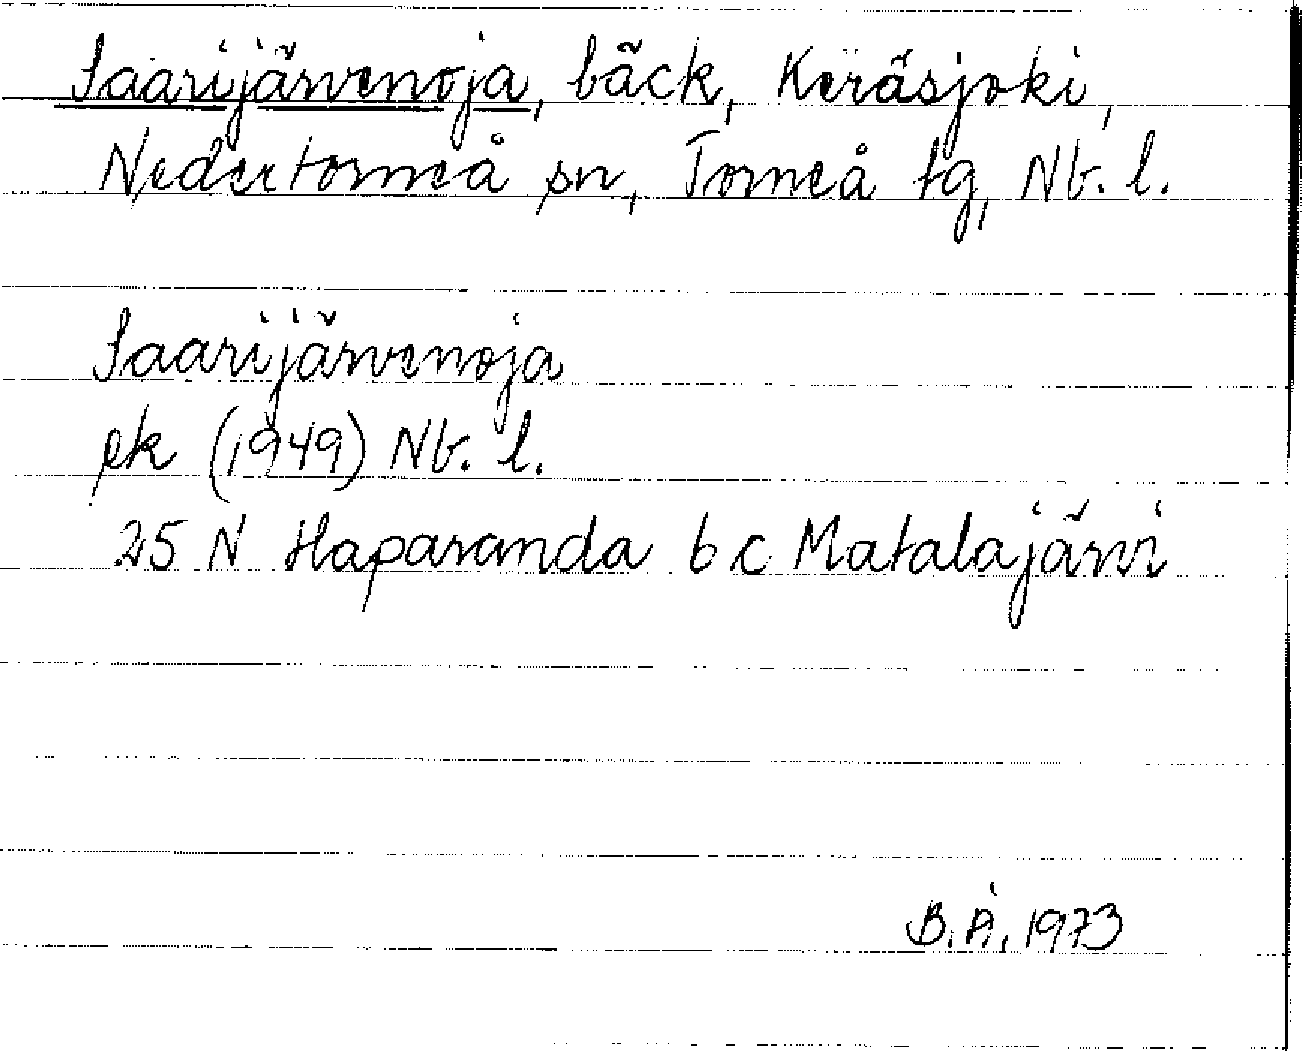 Saarijärvenoja, bäck, Keräsjoki,
Nedertorneå sn, Torneå tg, Nb. l.
Saarijärvenoja
ek (1949) Nb. l.
25 N Haparanda b c Matalajärvi
B. Å. 1973